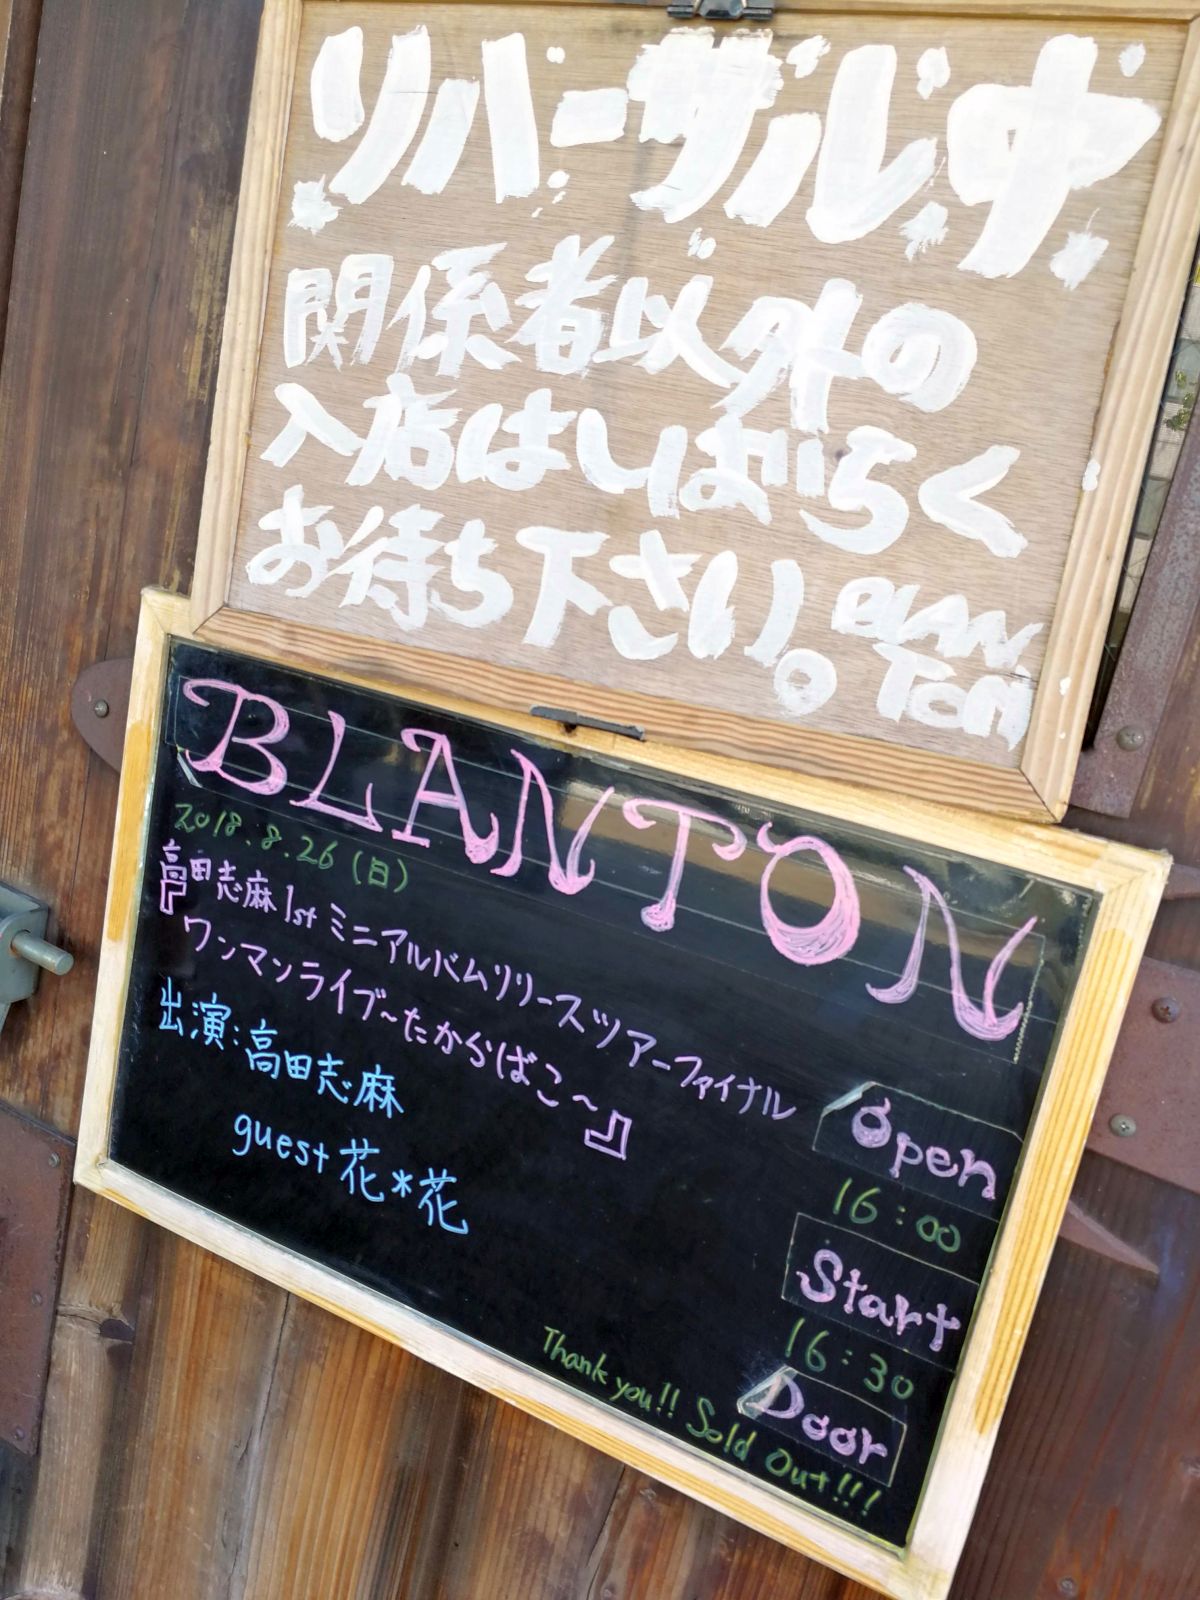 リハーサル中
関係者以外の
入店はしばらく
お待ち下さい。
BLAN.
TON
BLANTON
2018.8.26(日)
高田志麻1stミニアルバムリリースツアーファイナル
『ワンマンライブ~たからばこ~』
出演:高田志麻
guest 花*花
Open
16:00
Start
16:30
Door
Thank you!! Sold Out!!!